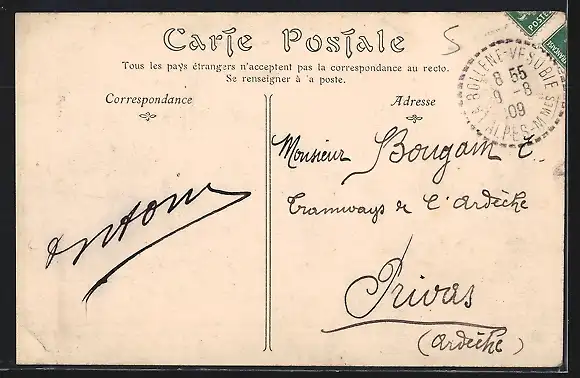 Carte Postale
Tous les pays étrangers n'acceptent pas la correspondance au recto.
Se renseigner à 'a poste.
Correspondance
Adresse
BOLLÈNE-VÉSUBIE
8 55
9 -8
09
ALPES-MMES
POSTES
Monsieur Bougain
Tramways de l'Ardèche
Privas
(Ardèche)
Antoine